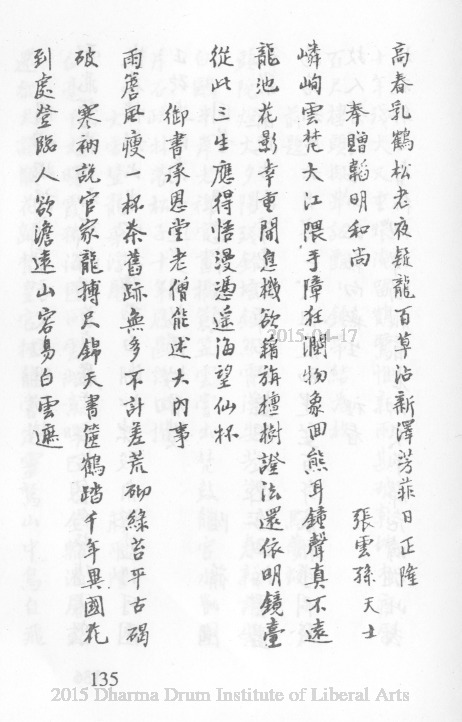 高春乳鶴松老夜疑龍百草沾新澤芳菲日正隆
奉贈韜明和尚
張雲孫天士
嶙峋雲茫大江隈手障狂瀾物象回熊耳鐘聲真不遠
龍池花影幸重開息機欲藉旃檀樹證法還依明鏡臺
從此三生應得悟漫憑滄海望仙杯
御書承恩堂老僧能述大內事
雨篝風瘦一杯茶舊跡無多不計差荒砌綠苔平古碣
破寒衲說官家龍摶尺錦天書篋鶴踏千年異國花
到處登臨人欲澹遠山容易白雲遮
135
2015-04-17
2015 Dharma Drum Institute of Liberal Arts